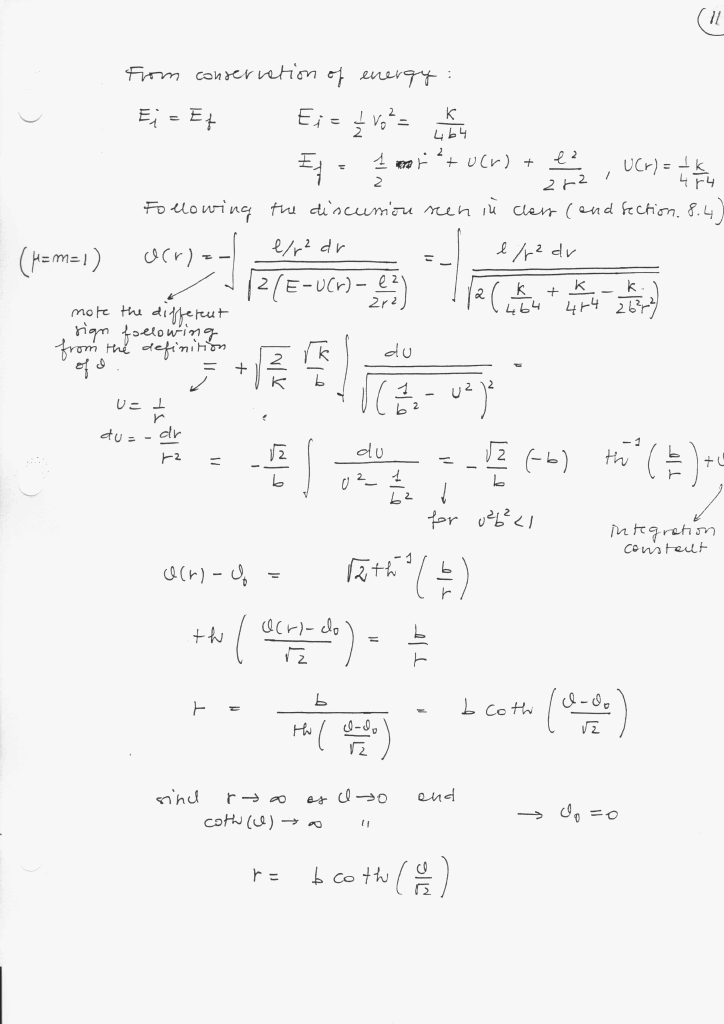 11
From conservation of energy :
E_i = E_f    E_i = 1/2 v_0^2 = k/4b^4
E_f = 1/2 ṙ^2 + U(r) + ℓ^2/2r^2 , U(r) = 1/4 k/r^4
Following the discussion seen in class (and section. 8.4)
(μ=m=1)  ϑ(r) = -∫ ℓ/r^2 dr / √(2(E-U(r) - ℓ^2/2r^2)) = -∫ ℓ/r^2 dr / √(2(k/4b^4 + k/4r^4 - k/2b^2r^2))
note the different
sign following
from the definition
of ϑ.
= + √(2/k) √k/b ∫ du / √((1/b^2 - u^2)^2) =
u = 1/r
du = - dr/r^2
= - √2/b ∫ du / (u^2 - 1/b^2) = - √2/b (-b) th^-1 (b/r) +
for u^2b^2<1
integration
constant
ϑ(r) - ϑ_0 = √2 th^-1 (b/r)
th ( (ϑ(r)-ϑ_0)/√2 ) = b/r
r = b / th( (ϑ-ϑ_0)/√2 ) = b coth ( (ϑ-ϑ_0)/√2 )
since r → ∞ as ϑ → 0 and
coth(ϑ) → ∞ "  → ϑ_0 = 0
r = b coth ( ϑ/√2 )